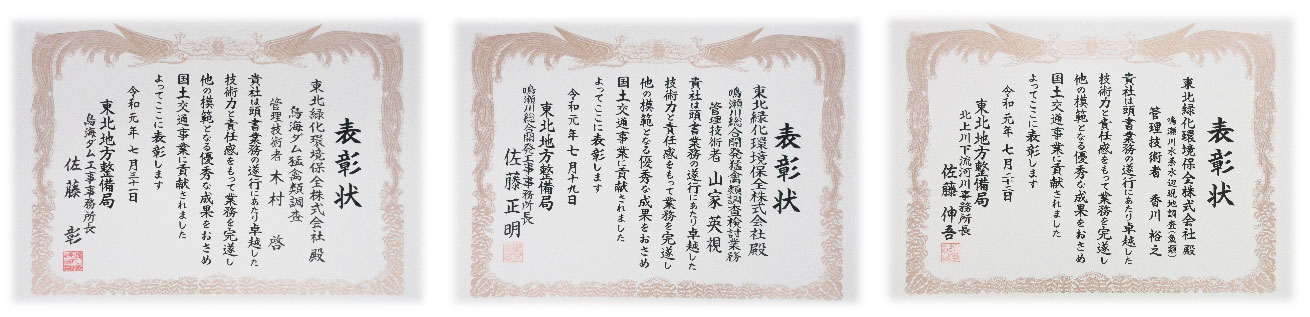 表彰状
東北緑化環境保全株式会社 殿
鳥海ダム猛禽類調査
管理技術者 木村 啓
貴社は頭書業務の遂行にあたり卓越した
技術力と責任感をもって業務を完遂し
他の模範となる優秀な成果をおさめ
国土交通事業に貢献されました
よってここに表彰します
令和元年七月三十一日
東北地方整備局
鳥海ダム工事事務所長
佐藤 彰
表彰状
東北緑化環境保全株式会社殿
鳴瀬川総合開発猛禽類調査検討業務
管理技術者 山家英視
貴社は頭書業務の遂行にあたり卓越した
技術力と責任感をもって業務を完遂し
他の模範となる優秀な成果をおさめ
国土交通事業に貢献されました
よってここに表彰します
令和元年七月十九日
東北地方整備局
鳴瀬川総合開発工事事務所長
佐藤正明
表彰状
東北緑化環境保全株式会社 殿
鳴瀬川水系水辺現地調査(魚類)
管理技術者 香川裕之
貴社は頭書業務の遂行にあたり卓越した
技術力と責任感をもって業務を完遂し
他の模範となる優秀な成果をおさめ
国土交通事業に貢献されました
よってここに表彰します
令和元年七月二十二日
東北地方整備局
北上川下流河川事務所長
佐藤伸吾